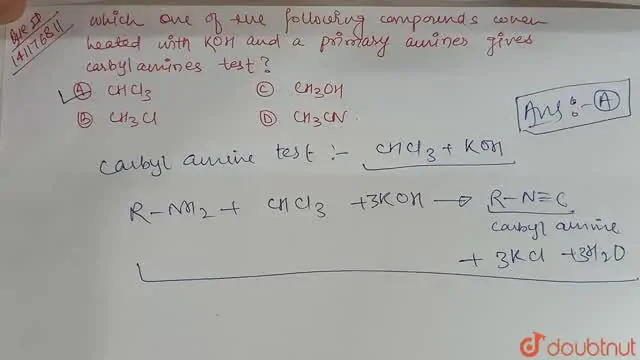 Bye ID
141176811
which one of the following compounds when
heated with KOH and a primary amines gives
carbylamines test?
A CHCl3
C CH3OH
B CH3Cl
D CH3CN
Ans :- A
carbyl amine test :- CHCl3 + KOH
R-NH2 + CHCl3 + 3KOH → R-N≡C
carbyl amine
+ 3KCl + 3H2O
doubtnut